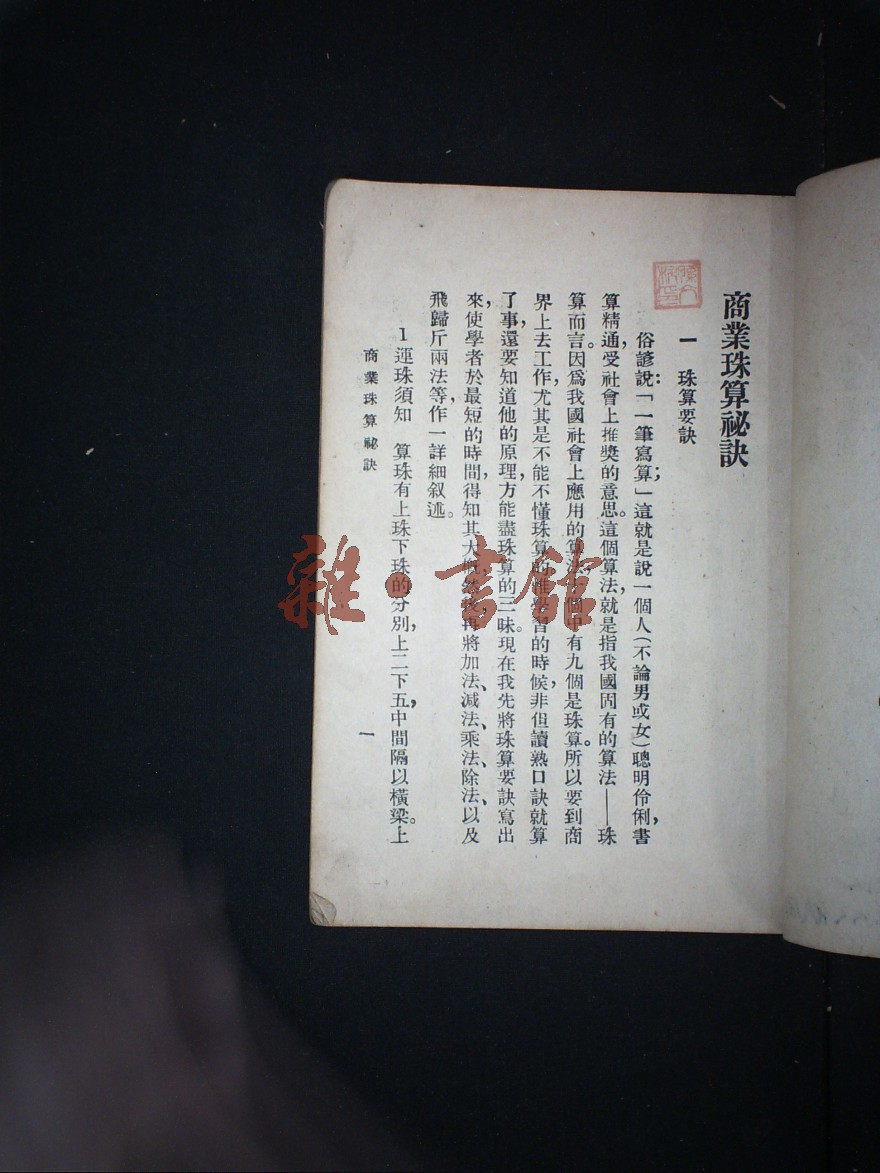 商業珠算祕訣
一 珠算要訣
俗諺說：「一筆寫算」；這就是說一個人（不論男或女）聰明伶俐，書
算精通，受社會上推獎的意思。這個算法，就是指我國固有的算法——珠
算而言。因爲我國社會上應用的算法，十個中有九個是珠算。所以要到商
界上去工作，尤其是不能不懂珠算的。學習的時候，非但讀熟口訣就算
了事，還要知道他的原理，方能盡珠算的三昧。現在我先將珠算要訣寫出
來，使學者於最短的時間，得知其大概，然後再將加法、減法、乘法、除法、以及
飛歸斤兩法等，作一詳細叙述。
1 運珠須知 算珠有上珠下珠的分別，上二下五，中間隔以橫梁。上
商業珠算祕訣
一
雜·書館